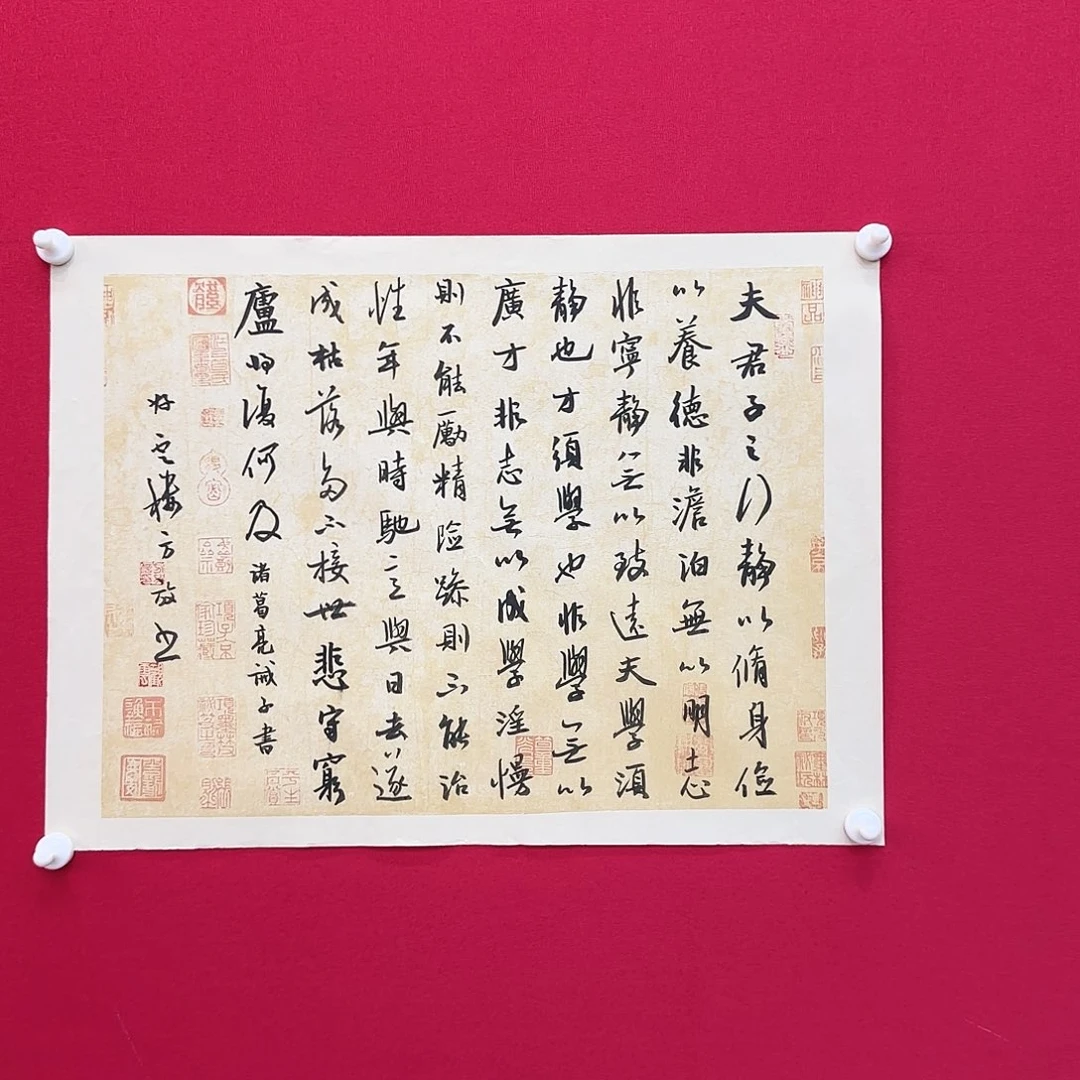 夫君子之行静以脩身儉
以養德非澹泊無以明志
非寧静無以致遠夫學須
静也才須學也非學無以
廣才非志無以成學淫慢
則不能勵精險躁則不能治
性年與時馳意與日去遂
成枯落多不接世悲守窮
廬將復何及諸葛亮誡子書
雲樓方放書